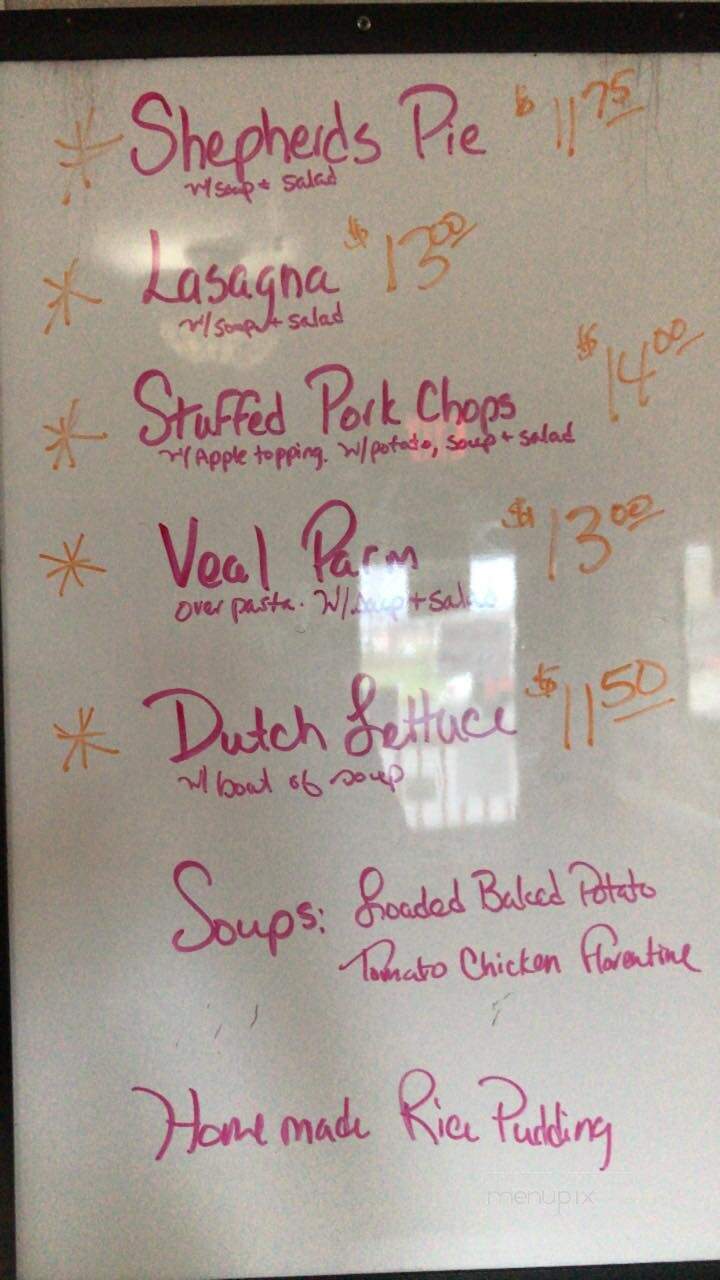 * Shepherds Pie $11 75
w/ soup + salad
* Lasagna $13 00
w/ soup + salad
* Stuffed Pork Chops $14 00
w/ Apple topping. w/ potato, soup + salad
* Veal Parm $13 00
over pasta. w/ soup + salad
* Dutch Lettuce $11 50
w/ bowl of soup
Soups: Loaded Baked Potato
Tomato Chicken Florentine
Homemade Rice Pudding
menupix